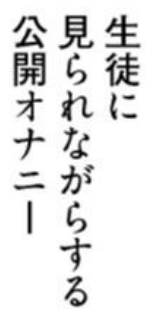 生徒に
見られながらする
公開オナニー